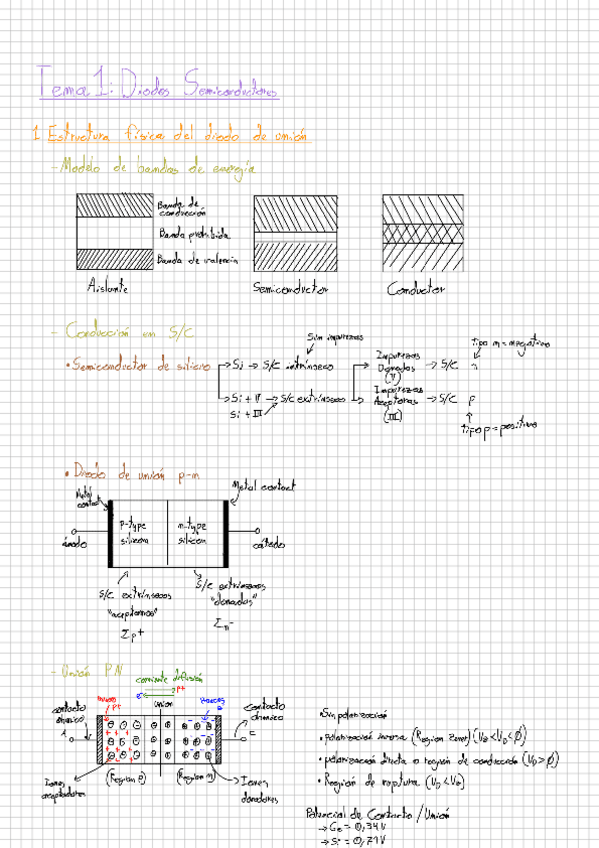 Tema 1: Diodos Semiconductores
1. Estructura física del diodo de unión
- Modelo de bandas de energía
Banda de conducción
Banda prohibida
Banda de valencia
Aislante
Semiconductor
Conductor
- Conducción en S/C
Sin impurezas
tipo n = negativo
• Semiconductor de silicio
Si → S/C intrínseco
Impurezas Donadas (V) → S/C n
Si + V → S/C extrínseco
Si + III
Impurezas Aceptoras (III) → S/C p
tipo p = positivo
• Diodo de unión p-n
Metal contact
Metal contact
p-type silicon
n-type silicon
ánodo
cátodo
S/C extrínsecos
S/C extrínsecos
"donados"
Σp+
Σn-
- Unión PN
corriente difusión
p+
unión
contacto óhmico
contacto óhmico
A
C
(Region p)
(Region n)
Iones aceptadores
Iones donadores
• Sin polarización
• polarización inversa (Region Zener)
• polarización directa o región de conducción (VD > 0)
• Región de ruptura
Potencial de Contacto / Unión
→ Ge = 0,34V
→ Si = 0,71V